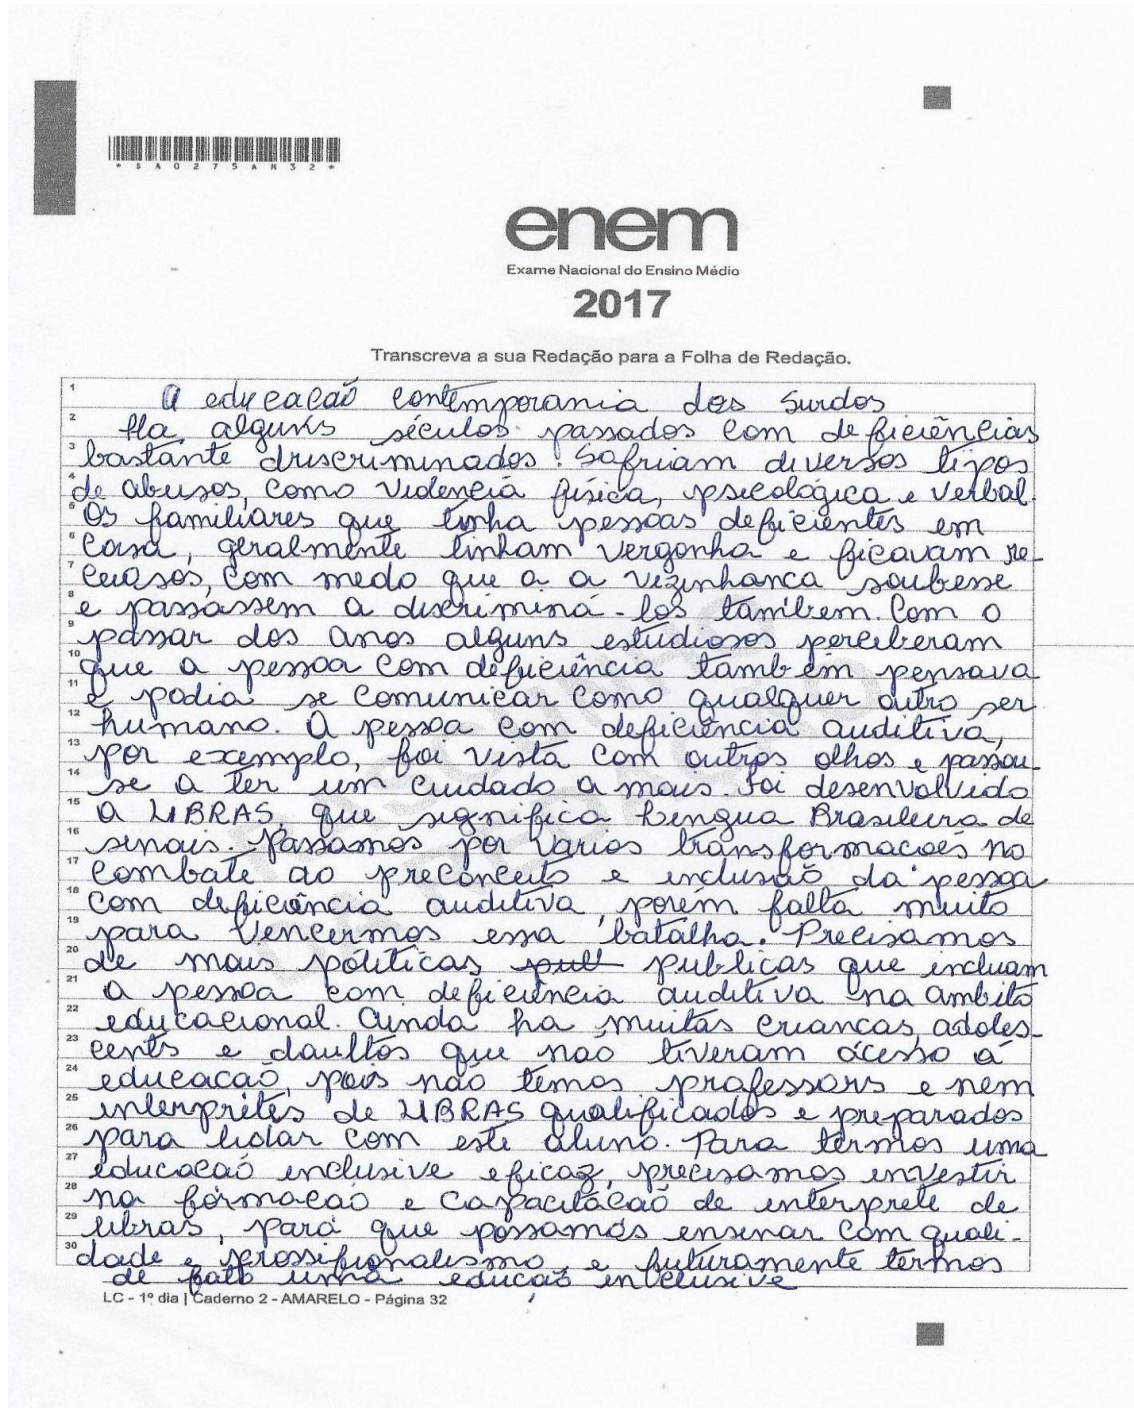 *SA0275AM32*
enem
Exame Nacional do Ensino Médio
2017
Transcreva a sua Redação para a Folha de Redação.
1 A educacaõ contemporania dos Surdos
2 Ha, alguns séculos passados com deficiências
3 bastante driscriminados. Safriam diversos tipos
4 de abusos, como violencia física, psicológica e verbal.
5 Os familiares que tinha pessoas deficientes em
6 Casa, geralmente tinham vergonha e ficavam re-
7 ceiasos, com medo que a a vizinhanca soubesse
8 e passassem a discriminá-los também. Com o
9 passar dos anos alguns estudiosos perceberam
10 que a pessoa com deficiência também pensava
11 e podia se comunicar como qualquer outro ser
12 humano. A pessoa com deficiencia auditiva,
13 por exemplo, foi vista com outros olhos e passou
14 se a ter um cuidado a mais. Foi desenvolvido
15 a LIBRAS, que significa Lengua Brasileira de
16 sinais. Passamos por varios transformacoēs no
17 combate ao preconceito e inclusaõ da pessoa
18 com deficiência auditiva, porém falta muito
19 para vencermos essa batalha. Precisamos
20 de mais póliticas publicas que incluam
21 a pessoa com deficiência auditiva na ambito
22 educacional. Ainda ha muitas criancas, adoles-
23 cents e daultos que nao tiveram ácesso á
24 educacaõ, pois naõ temos professors e nem
25 interprites de LIBRAS qualificados e preparados
26 para lidar com este aluno. Para termos uma
27 educacaõ inclusive eficaz, precisamos investir
28 na formacaõ e capacitacaõ de interprete de
29 libras, para que possamos ensinar com quali-
30 dade e prossifionalismo, e futuramente termos
de fato uma educçaõ inclusive
LC - 1º dia | Caderno 2 - AMARELO - Página 32